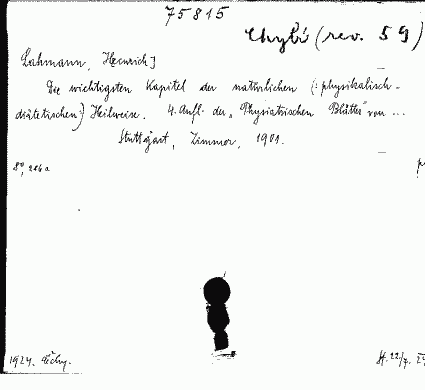 75815
Chybí (rev. 59)
Lahmann, Heinrich]
Die wichtigsten Kapitel der natürlichen (: physikalisch-
diätetischen) Heilweise. 4. Aufl. der „Physiatrischen Blätter" von ...
Stuttgart, Zimmer, 1901.
8°, 286 a
1924. Tichy.
22/7.